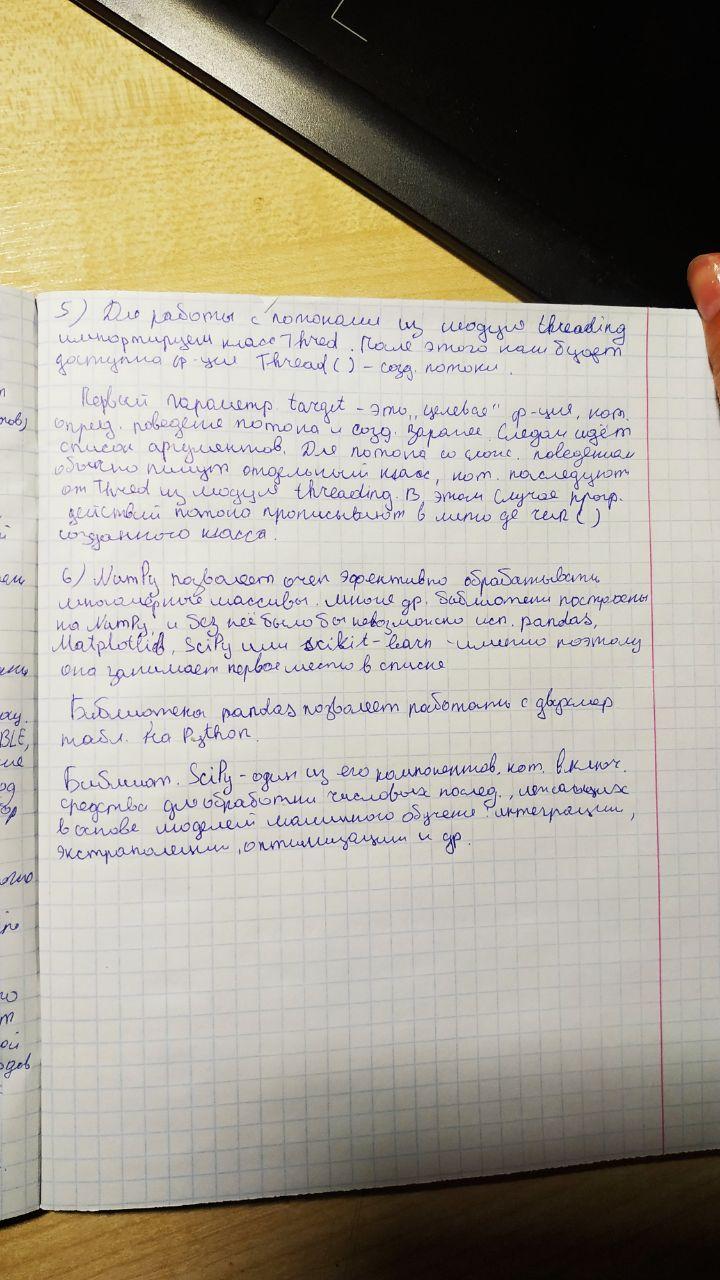 5) Для работы с потоками из модуля threading
импортируем класс Thred. После этого нам будет
доступна ф-ция Thread() - созд. потоки.
Первый параметр target - это "целевая" ф-ция, кот.
опред. поведение потока и созд. заранее. Следом идёт
список аргументов. Для потока со слож. поведением
обычно пишут отдельный класс, кот. последуют
от Thred из модуля threading. В этом случае прогр.
действий потока прописывают в методе
созданного класса.
6) NumPy позволяет очен эфективно обрабатывать
многомерные массивы. Многие др. библиотеки построены
на NumPy, и без неё было бы невозможно исп. pandas,
Matplotlib, SciPy или scikit-learn - именно поэтому
она занимает первое место в списке
Библиотека pandas позволяет работать с двухмер
табл. на Python.
Библиот. SciPy - один из его компонентов, кот. включ.
средства для обработки числовых послед., лежащих
в основе моделей машинного обучение: интеграции,
экстраполяции, оптимизации и др.
BLE,